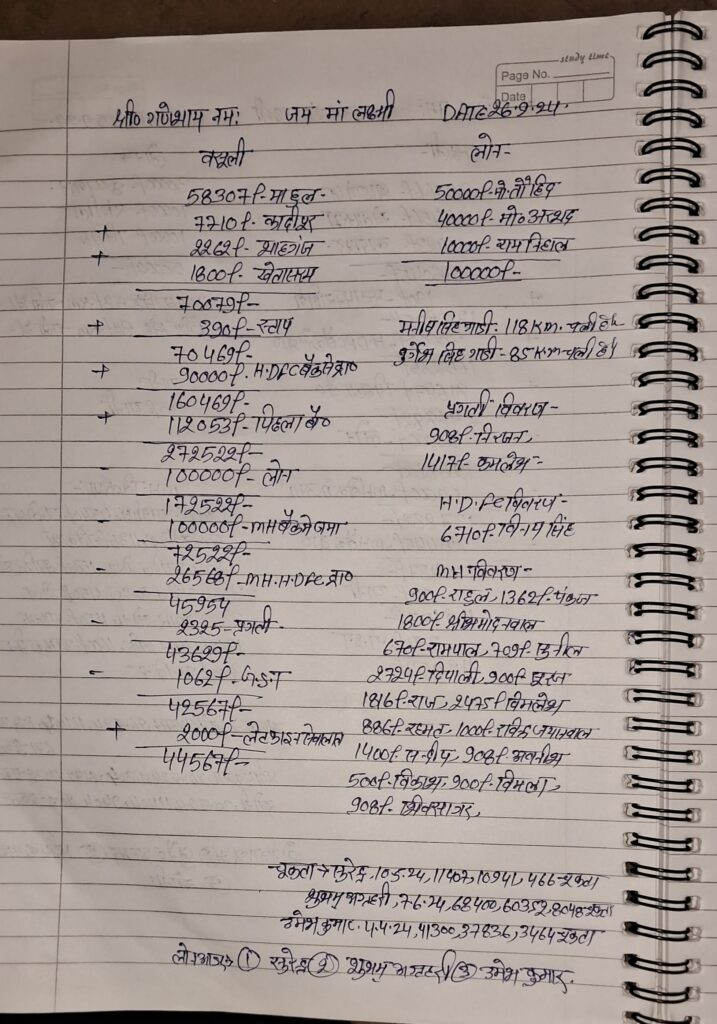 study time
Page No.
Date
श्री० गणेशाय नमः जय मां लक्ष्मी DATE 26.9.24.
वसूली लोन-
58307f- माहुल- 50000f- मो० तौहिद
+ 7710f- कादीपुर 40000f- मो० अरशद
+ 2262f- शाहगंज 10000f- राम निहाल
1800f- खेतासराय 100000f-
70079f-
+ 390f- स्टाम्प मनीष सिंह गाडी- 118 Km. चली है।
70469f- दुर्गेश सिंह गाडी- 85 Km चली है।
+ 90000f. H.DFC बैंक से प्रा०
160469f- प्रगती विवरण-
+ 112053f- पिछला बै० 908f- निरंजन,
272522f- 1417f- कमलेश-
- 100000f- लोन
172522f- H.D.FC विवरण-
- 100000f- MH बैंक मे जमा 6710f- विनय सिंह
72522f-
- 26568f- MH.H.DFC प्रा० MH विवरण-
45954 900f- राहुल, 1362f- पंकज
- 2325- प्रगती- 1800f-
43629f- 670f- रामपाल, 709f- सुनील
- 1062f- 2724f दिपाली, 900f- सूरज
42567f- 1816f- राज, 2475f विमलेश
+ 2000f- लेट फाइन 886f- रहमत, 1000f- रविन्द्र जयसवाल
44567f- 1400f- सन्दीप, 908f- अवनीश
500f- विकाश, 900f- विमला,
908f- शिवसागर,
-रुकता → सुरेन्द्र, 10.5.24, 11407, 10941, 466- रुकता
शुभम अग्रहरी, 7.6.24, 68400, 60352, 8048- रुकता
उमेश कुमार. 4.4.24, 41300, 37836, 3464 रुकता
① सुरेन्द्र ② शुभम अग्रहरी ③ उमेश कुमार.